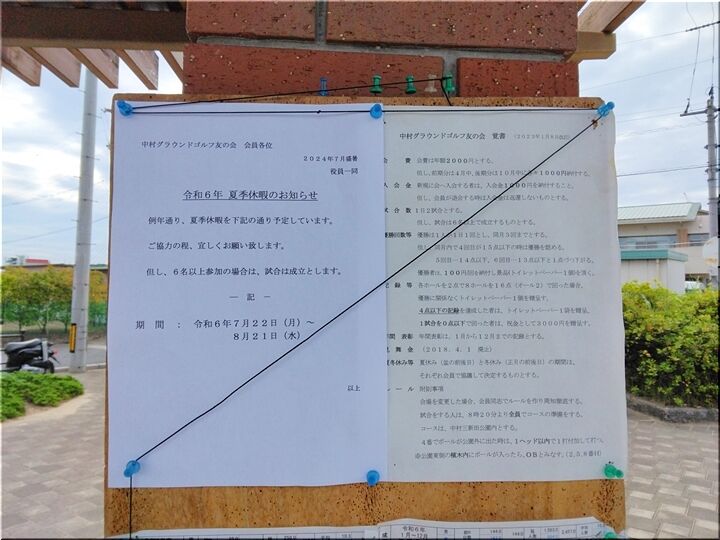 中村グラウンドゴルフ友の会 会員各位
2024年7月盛暑
役員一同
令和6年 夏季休暇のお知らせ
例年通り、夏季休暇を下記の通り予定しています。
ご協力の程、宜しくお願い致します。
但し、6名以上参加の場合は、試合は成立とします。
― 記 ―
期 間 : 令和6年7月22日(月)~
8月21日(水)
以上
中村グラウンドゴルフ友の会 覚書 (2023年1月8日改訂)
会 費 会費は年額2000円とする。
但し、前期分は4月中、後期分は10月中に各々1000円納付する。
入 会 金 新規に会へ入会する者は、入会金1000円を納付すること。
但し、会員が退会する時は入会金は返還しないものとする。
試 合 数 1日2試合とする。
但し、試合は6名以上で成立するものとする。
優勝回数等 優勝は1人1日1回とし、同月3回までとする。
但し、同月内で4回目が15点以下の時は優勝を認める。
5回目―14点以下、6回目―13点以下と1点づつ下がる。
優勝者は、100円/回を納付し景品(トイレットペーパー1個)を頂く。
記 録 等 各ホールを2点で8ホールを16点(オール2)で回った場合、
優勝に関係なくトイレットペーパー1個を贈呈す。
4点以下の記録を達成した者は、トイレットペーパー1袋を贈呈。
1試合を0点以下で回った者は、祝金として3000円を贈呈す。
年間 表彰 年間表彰は、1月から12月までの記録とする。
見 舞 金 (2018.4.1 廃止)
夏冬休み等 夏休み(盆の前後日)と冬休み(正月の前後日)の期間は、
それぞれ会員で協議して決定するものとする。
ルール 附則事項
会場を変更した場合、会員同志でルールを作り周知徹底する。
試合をする人は、8時20分より全員でコースの準備をする。
コースは、中村三新田公園内とする。
4番でボールが公園外に出た時は、1ヘッド以内で1打付加して打つ。
公園東側の植木内にボールが入ったら、OBとみなす。(2,5,8番H)
令和6年
1月~12月